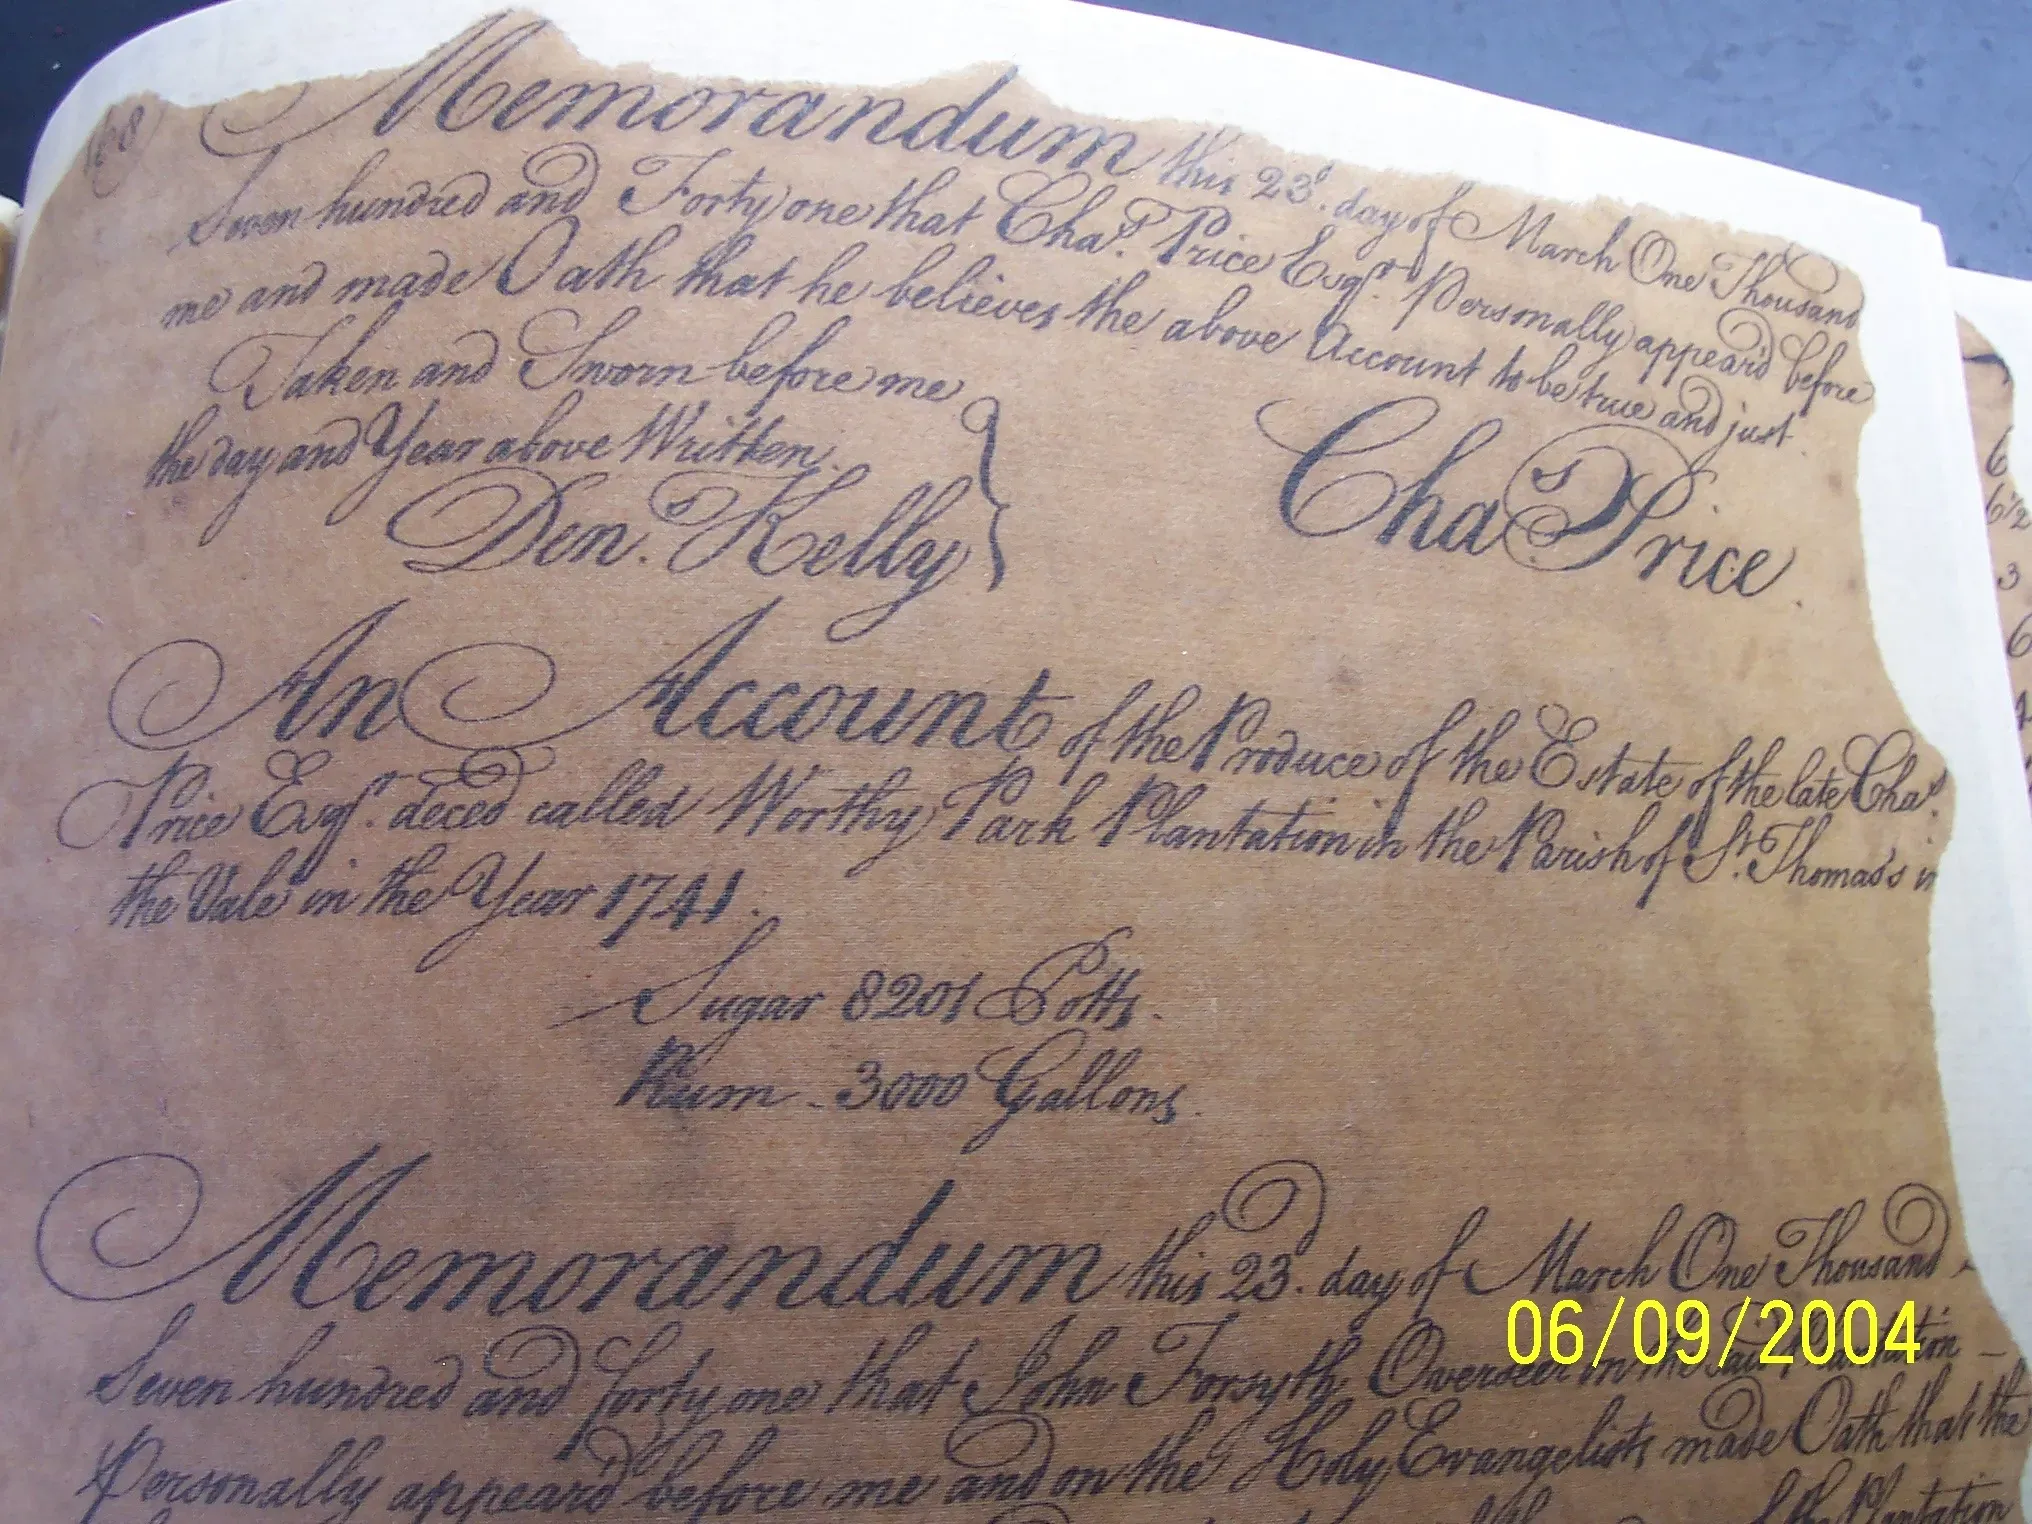 168
Memorandum this 23d. day of March One Thousand
Seven hundred and Forty one that Chas. Price Esqr. Personally appear'd before
me and made Oath that he believes the above Account to be true and just.
Taken and Sworn before me
the day and Year above Written.
Dens. Kelly
Chas Price.
An Account of the Produce of the Estate of the late Chas.
Price Esqr. deced called Worthy Park Plantation in the Parish of St. Thomas's in
the Vale in the Year 1741.
Sugar 8201 Potts.
Rum - 3000 Gallons.
Memorandum this 23. day of March One Thousand
Seven hundred and forty one that John Forsyth Overseer in the said Plantation
Personally appear'd before me and on the Holy Evangelists made Oath that the
the Plantation
6
6 1/2
3
6
06/09/2004